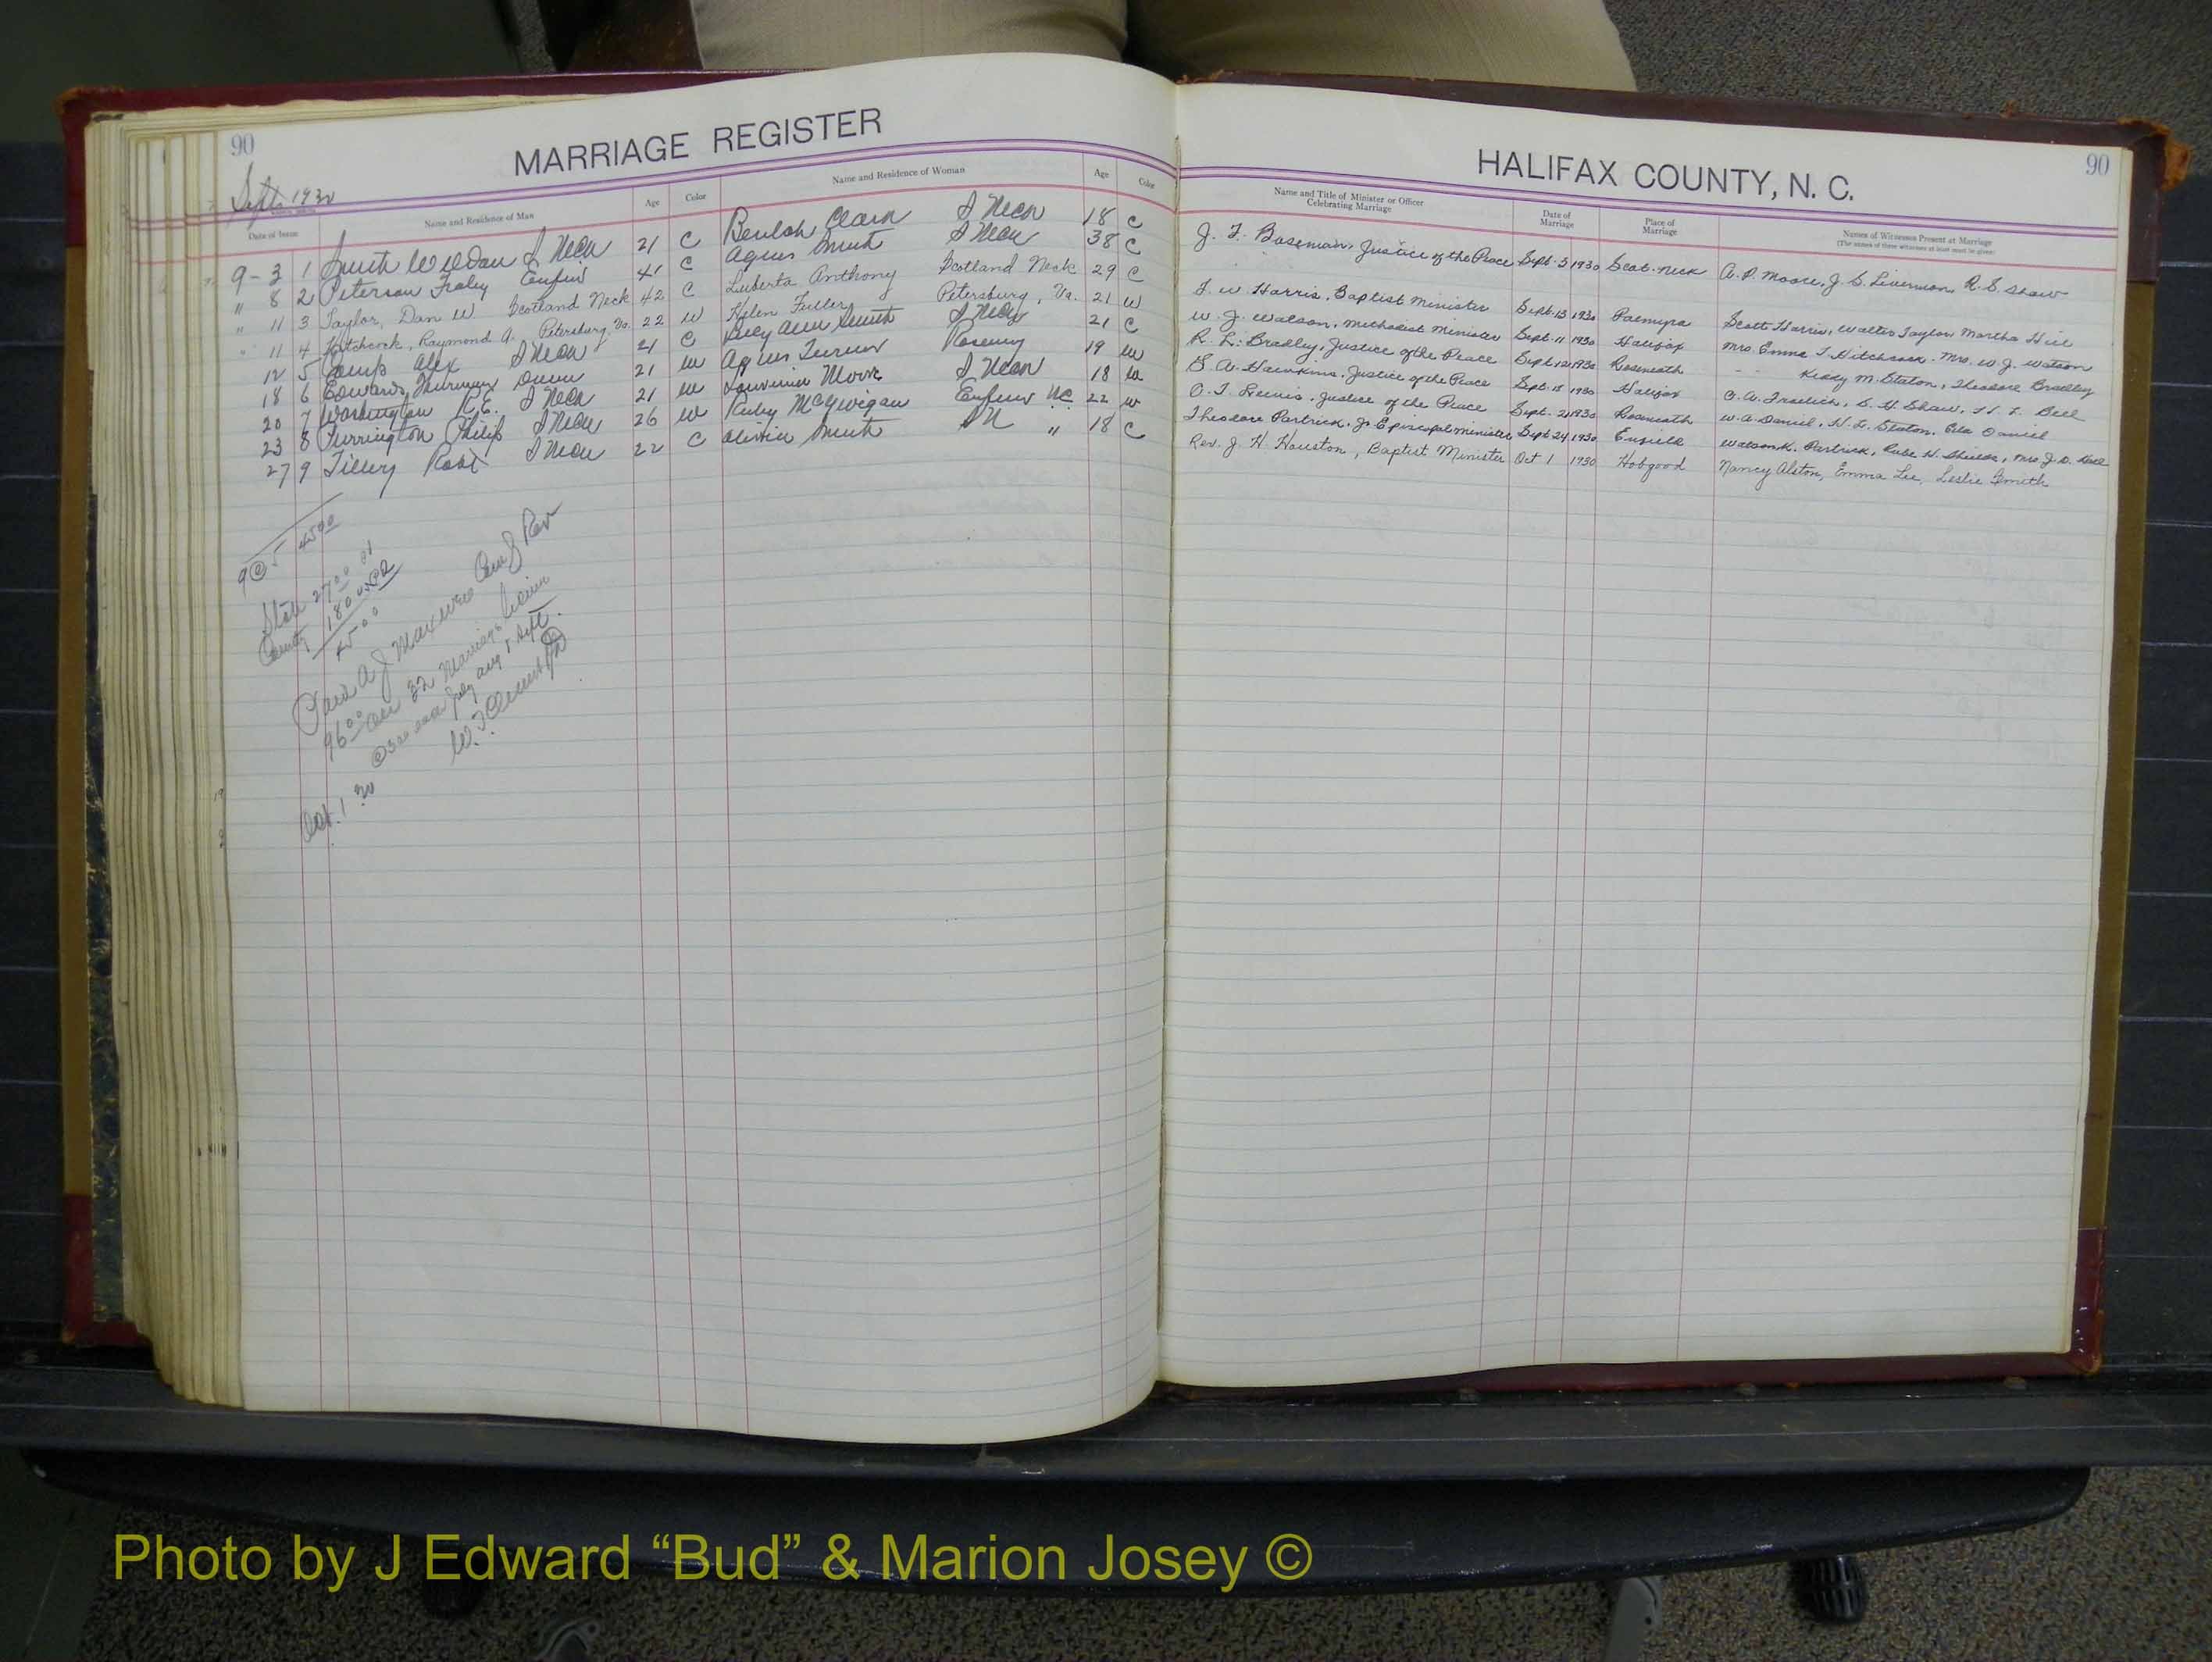 90
MARRIAGE REGISTER
Sept 1930
Date of Issue Name and Residence of Man Age Color Name and Residence of Woman Age Color
9-3 1 Smith Weldon S Neck 21 C Beulah Clark S Neck 18 C
" 8 2 Peterson Fraley Enfield 41 C Agnes Smith S Neck 38 C
" 11 3 Taylor, Dan W Scotland Neck 42 C Luberta Anthony Scotland Neck 29 C
" 11 4 Hitchcock, Raymond A. Petersburg, Va. 22 W Helen Fuller Petersburg, Va. 21 W
12 5 Alex S Neck 21 C Lucy Ann Smith S Neck 21 C
18 6 Edwards Thurman 21 W Agnes Turner 19 W
20 7 Washington R.E. S Neck 21 W Louvinia Moore S Neck 18 W
23 8 Purrington Philip S Neck 26 W Ruby McGwigan Enfield NC 22 W
27 9 Tillery Robt S Neck 22 C Olivia Smith S N " 18 C
9 @ 5 45 00
State 27 00
County 18 00
45 00
Paid A J Maxwell Com of Rev
96 00 on 32 Marriage License
July Aug & Sept.
Oct. 1 30
HALIFAX COUNTY, N. C.
90
Name and Title of Minister or Officer Celebrating Marriage Date of Marriage Place of Marriage Names of Witnesses Present at Marriage
(The names of three witnesses at least must be given)
J. F. Baseman, Justice of the Peace Sept. 3 1930 Scot. Neck A. P. Moore, J. S. Liverman, R. S. Shaw
J. W. Harris, Baptist Minister Sept. 13 1930 Palmyra Scott Harris, Walter Taylor, Martha Hill
W. J. Watson, Methodist Minister Sept. 11 1930 Halifax Mrs. Emma T. Hitchcock, Mrs. W. J. Watson
R. L. Bradley, Justice of the Peace Sept. 12 1930 Roseneath Kiddy M. Staton, Theodore Bradley
S. A. Hawkins, Justice of the Peace Sept. 18 1930 Halifax S. H. Shaw, Bell
Justice of the Peace Sept. 21 1930 Roseneath W. A. Daniel, H. L. Staton, Daniel
Theodore Partrick, Jr. Episcopal Minister Sept 24 1930 Enfield Watson K. Partrick, H. Shields, Mrs. J. D.
Rev. J. H. Houston, Baptist Minister Oct 1 1930 Hobgood Nancy Alston, Emma Lee, Leslie Smith
Photo by J Edward “Bud” & Marion Josey ©